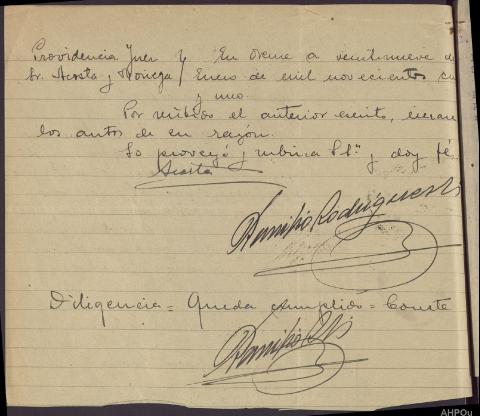 Providencia Juez
Sr. Acosta y Noriega
En Orense a veintinueve de
Enero de mil novecientos
y uno.
Por recibido el anterior escrito,
los autos de su razón.
Lo proveyó y rubrica SSª y doy fé
Acosta
Rodriguez
Diligencia = Queda cumplido = Conste
AHPOu